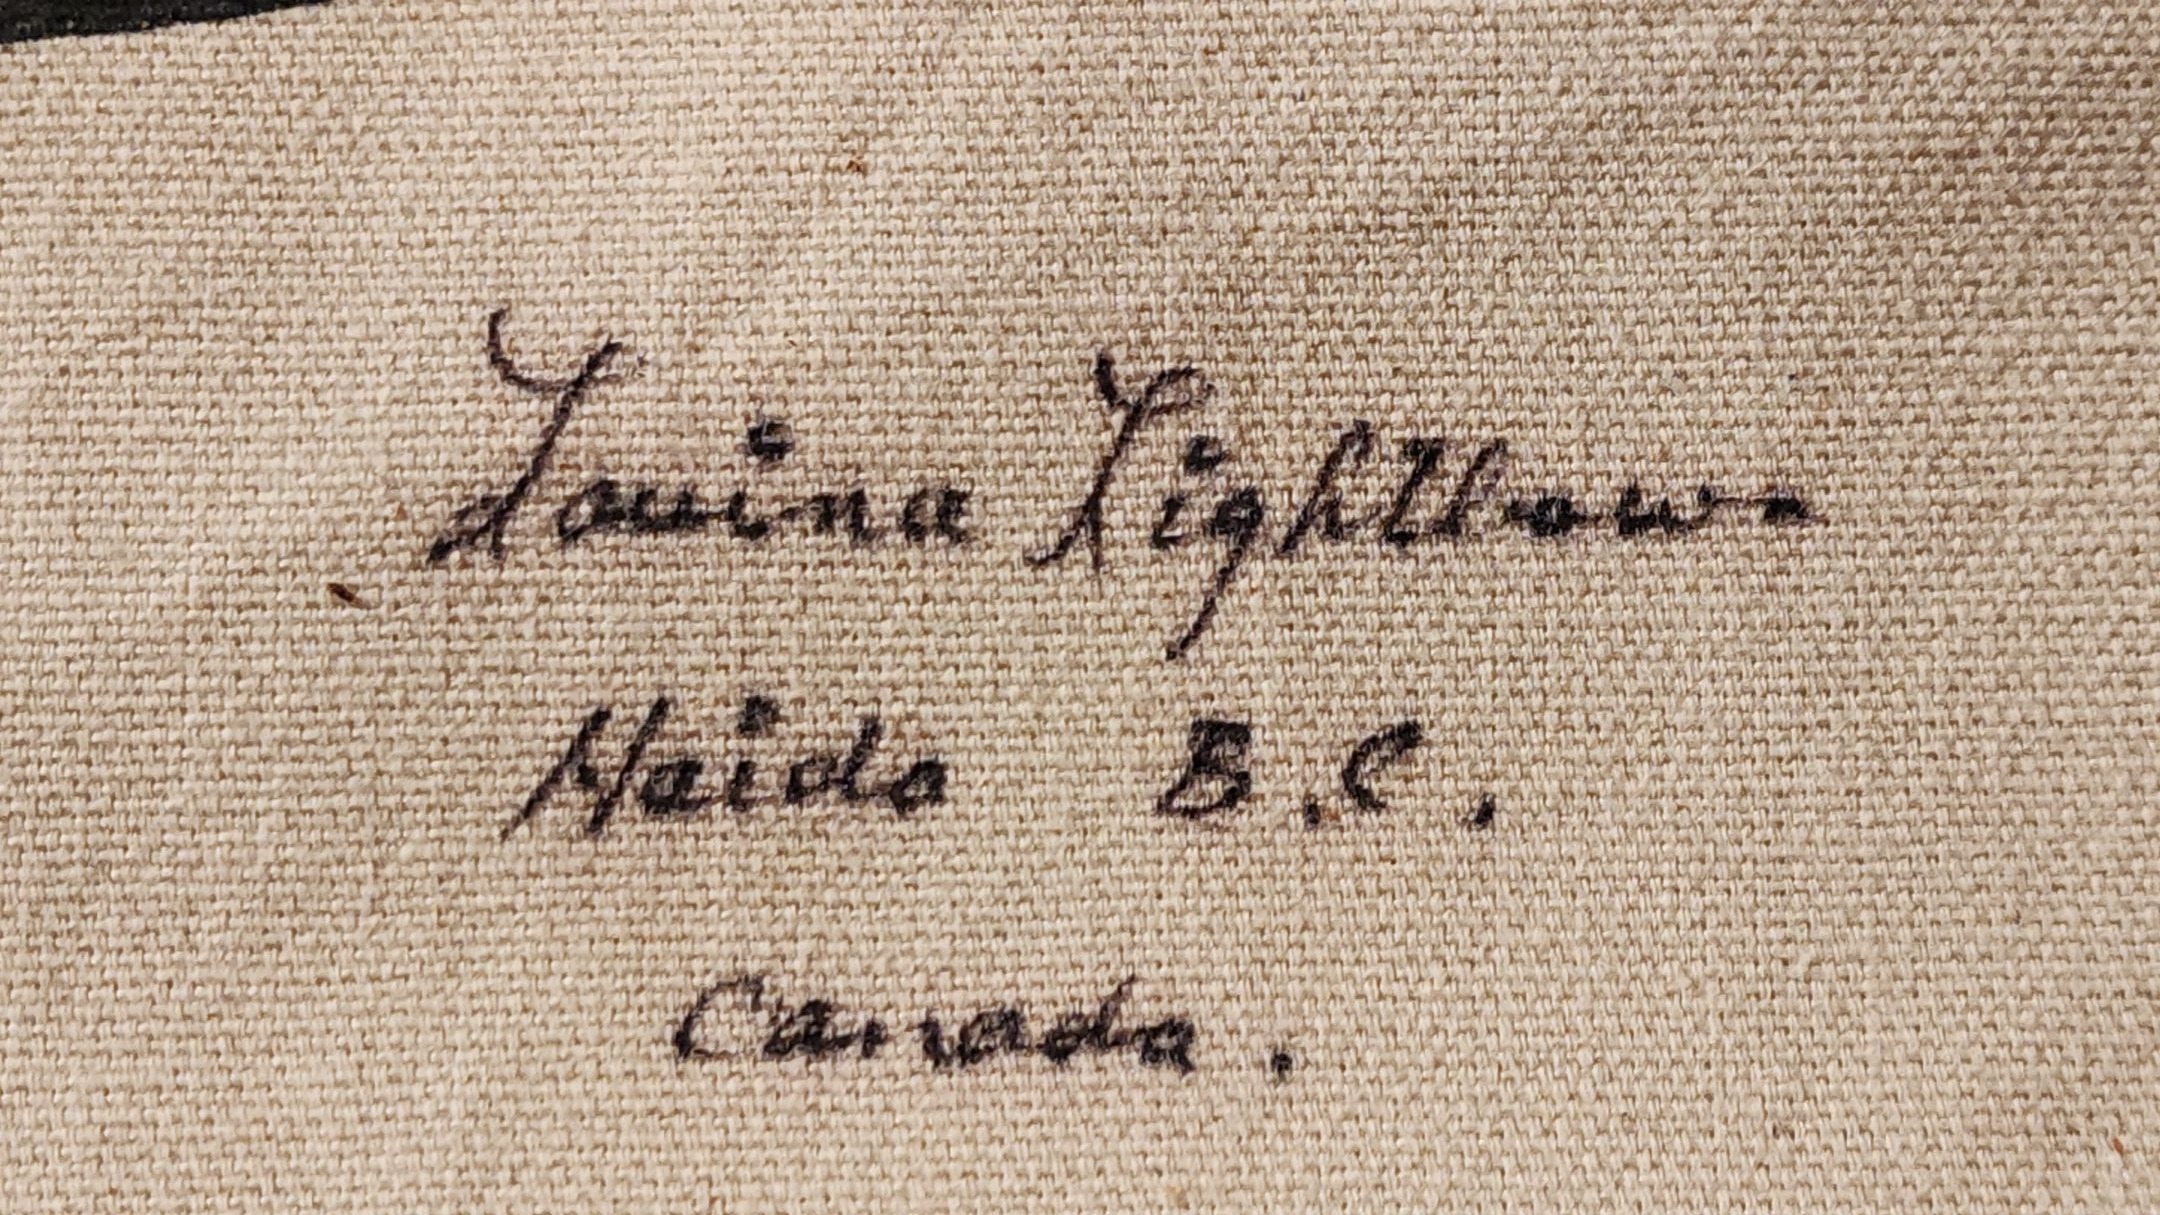 Lavina Lightbown
Haida B.C.
Canada.